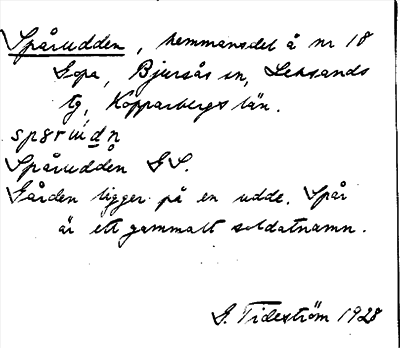 Spårudden, hemmansdel å nr 18
Sopa, Bjursås sn, Leksands
tg, Kopparbergs län.
Spårudden GS.
Gården ligger på en udde. Spår
är ett gammalt soldatnamn.
G. Tideström 1928